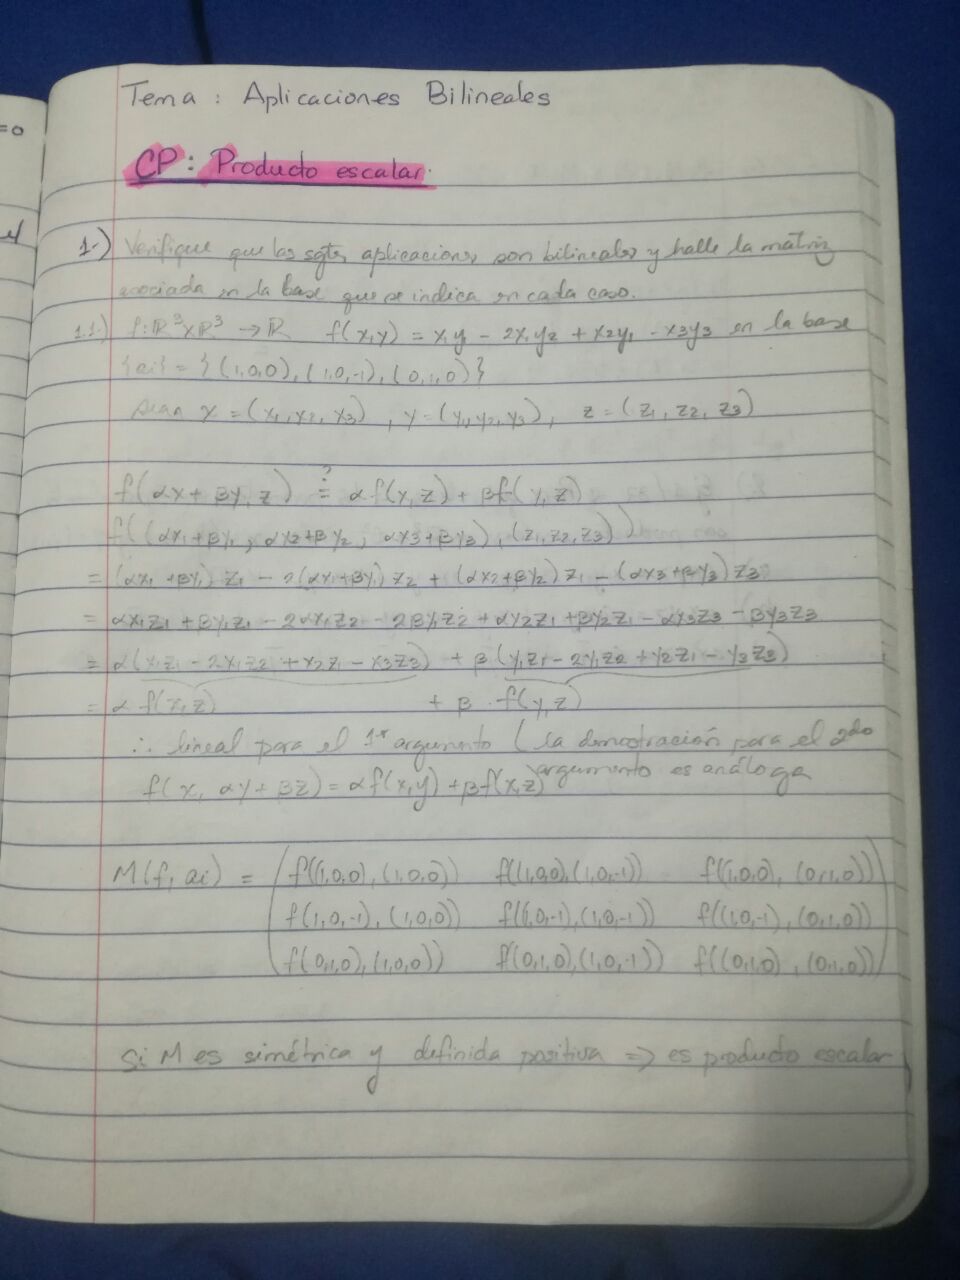 =0
el
Tema : Aplicaciones Bilineales
CP: Producto escalar.
1.) Verifique que las sgtes aplicaciones son bilineales y halle la matriz
asociada en la base que se indica en cada caso.
1.1) f: ℝ³xℝ³ → ℝ f(x,y) = x₁y₁ - 2x₁y₂ + x₂y₁ - x₃y₃ en la base
{ai} = {(1,0,0), (1,0,-1), (0,1,0)}
sean x = (x₁,x₂,x₃), y = (y₁,y₂,y₃), z = (z₁,z₂,z₃)
f(αx + βy, z) ≟ αf(x,z) + βf(y,z)
f((αx₁+βy₁, αx₂+βy₂, αx₃+βy₃), (z₁,z₂,z₃))
= (αx₁+βy₁)z₁ - 2(αx₁+βy₁)z₂ + (αx₂+βy₂)z₁ - (αx₃+βy₃)z₃
= αx₁z₁ + βy₁z₁ - 2αx₁z₂ - 2βy₁z₂ + αx₂z₁ + βy₂z₁ - αx₃z₃ - βy₃z₃
= α(x₁z₁ - 2x₁z₂ + x₂z₁ - x₃z₃) + β(y₁z₁ - 2y₁z₂ + y₂z₁ - y₃z₃)
= α f(x,z) + β · f(y,z)
∴ lineal para el 1er argumento (la demostración para el 2do
argumento es análoga
f(x, αy + βz) = αf(x,y) + βf(x,z)
M(f, ai) = (f((1,0,0),(1,0,0)) f((1,0,0),(1,0,-1)) f((1,0,0),(0,1,0))
f(1,0,-1),(1,0,0)) f((1,0,-1),(1,0,-1)) f((1,0,-1),(0,1,0))
f(0,1,0),(1,0,0)) f(0,1,0),(1,0,-1)) f((0,1,0),(0,1,0)))
Si M es simétrica y definida positiva ⇒ es producto escalar